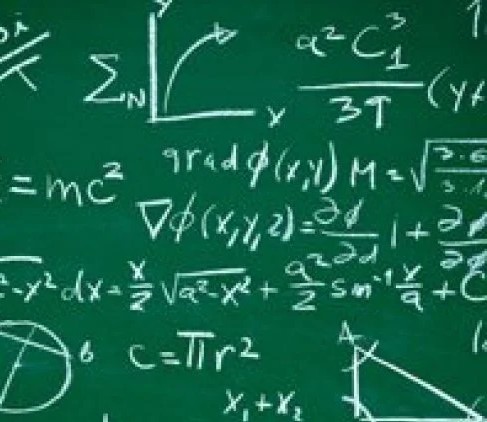 y
a² C₁³ / 3π (y+
Σ_N
x
grad φ(x,y) M = √3·6 / 3·1
= mc²
∇φ(x,y,z) = ∂φ / ∂d 1 + ∂φ
-x² dx = x/2 √a²-x² + a²/2 sin⁻¹ x/a + C
B
C = πr²
A
x₁ + x₂